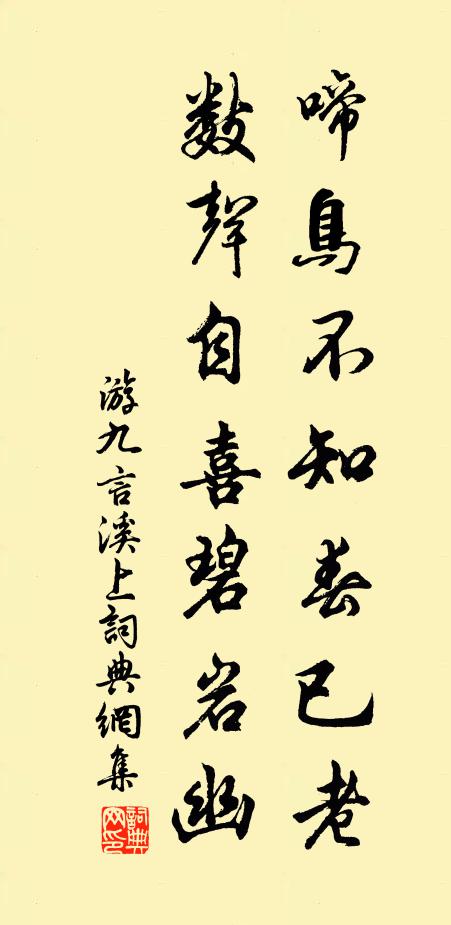 啼鳥不知春已老
數聲自喜碧岩幽
游九言溪上詞典網集
詞典網印